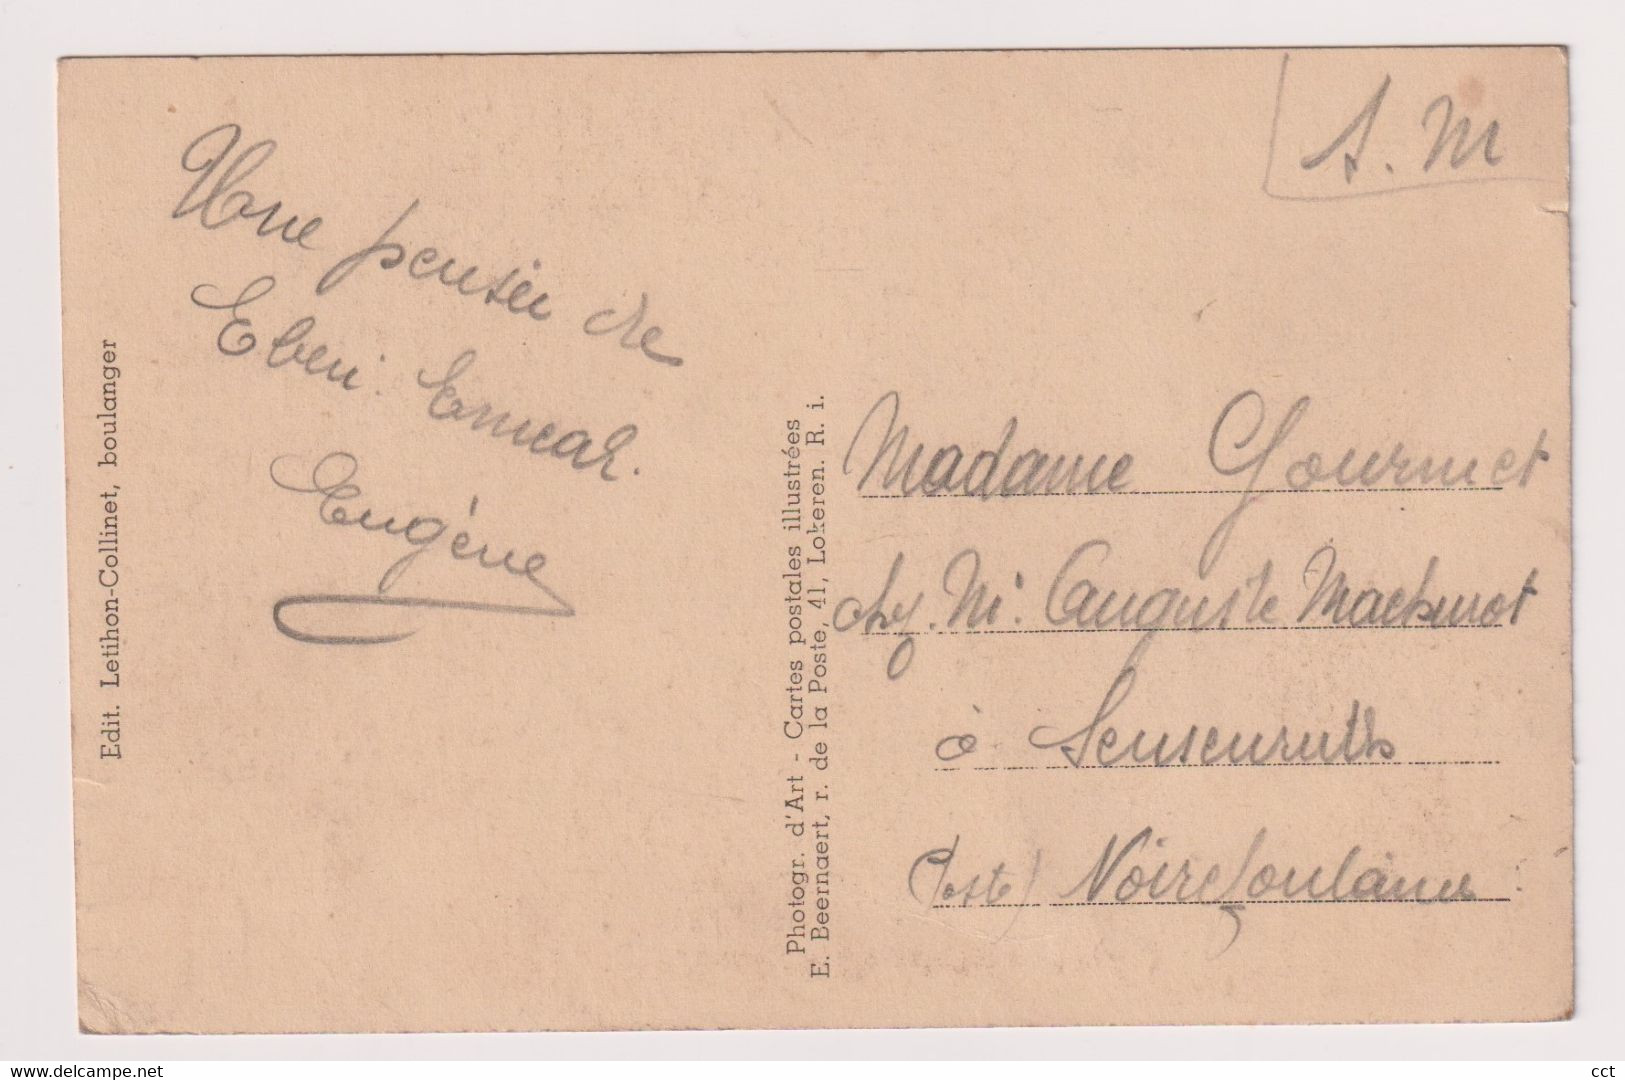 A. M
Une pensée de
Eben. Emael.
Eugène
Edit. Letihon-Collinet, boulanger
Photogr. d'Art - Cartes postales illustrées
E. Beernaert, r. de la Poste, 41, Lokeren. R. i.
Madame Gourmet
chez. M. Auguste
à Sensenruth
(Poste) Noirefontaine
www.delcampe.net
cct